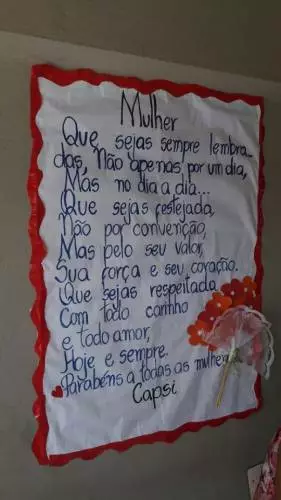 Mulher
Que sejas sempre lembra-
das, Não apenas por um dia,
Mas no dia a dia...
Que sejas festejada,
Não por convenção,
Mas pelo seu valor,
Sua força e seu coração.
Que sejas respeitada
Com todo carinho
e todo amor,
Hoje e sempre.
Parabéns a todas as mulheres
Capsi